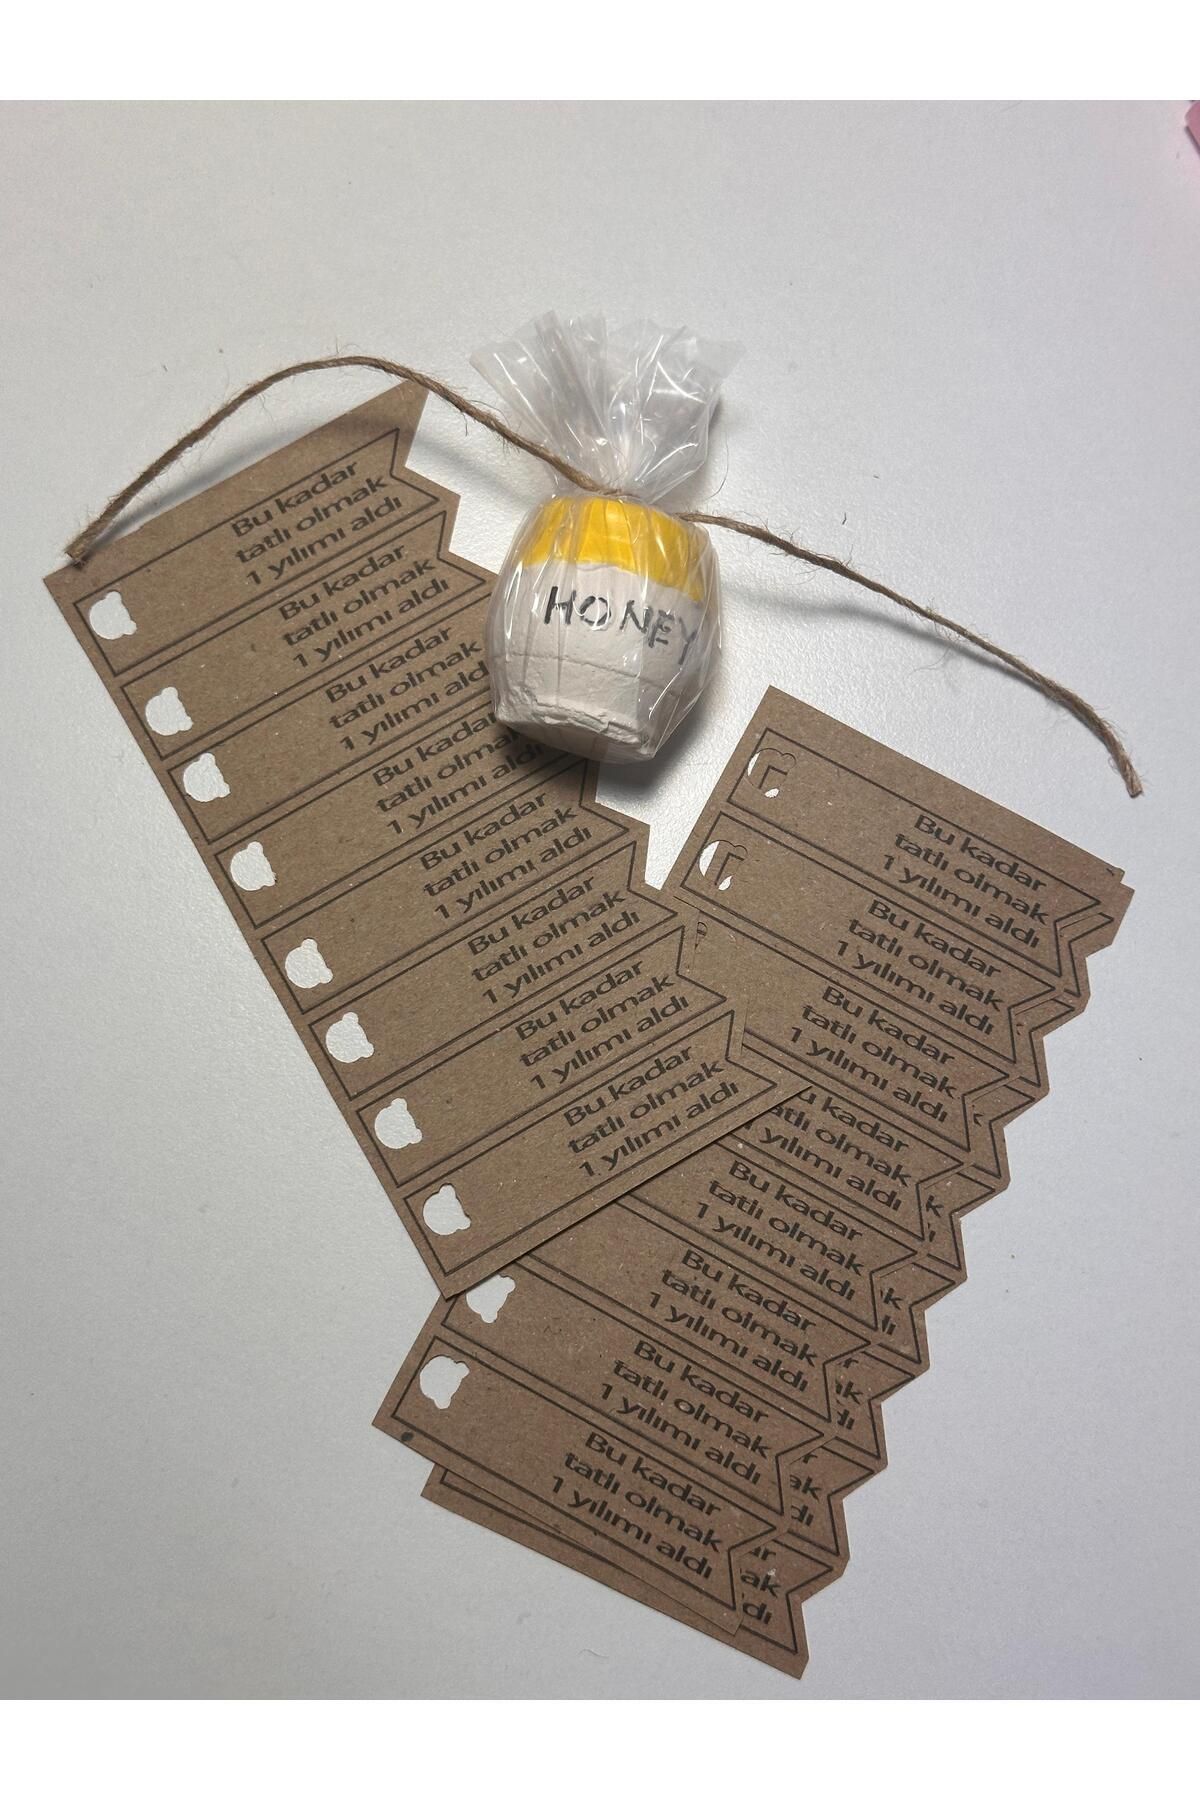 HONEY
Bu kadar
tatlı olmak
1 yılımı aldı
Bu kadar
tatlı olmak
1 yılımı aldı
Bu kadar
tatlı olmak
1 yılımı
Bu kadar
tatlı olmak
1 yılımı aldı
Bu kadar
tatlı olmak
1 yılımı aldı
Bu kadar
tatlı olmak
1 yılımı aldı
Bu kadar
tatlı olmak
1 yılımı aldı
Bu kadar
tatlı olmak
1 yılımı aldı
Bu kadar
tatlı olmak
1 yılımı aldı
Bu kadar
tatlı olmak
1 yılımı aldı
Bu kadar
tatlı olmak
1 yılımı aldı
Bu kadar
tatlı olmak
1 yılımı aldı
Bu kadar
tatlı olmak
1 yılımı aldı
Bu kadar
tatlı olmak
1 yılımı aldı
Bu kadar
tatlı olmak
1 yılımı aldı
Bu kadar
tatlı olmak
1 yılımı aldı